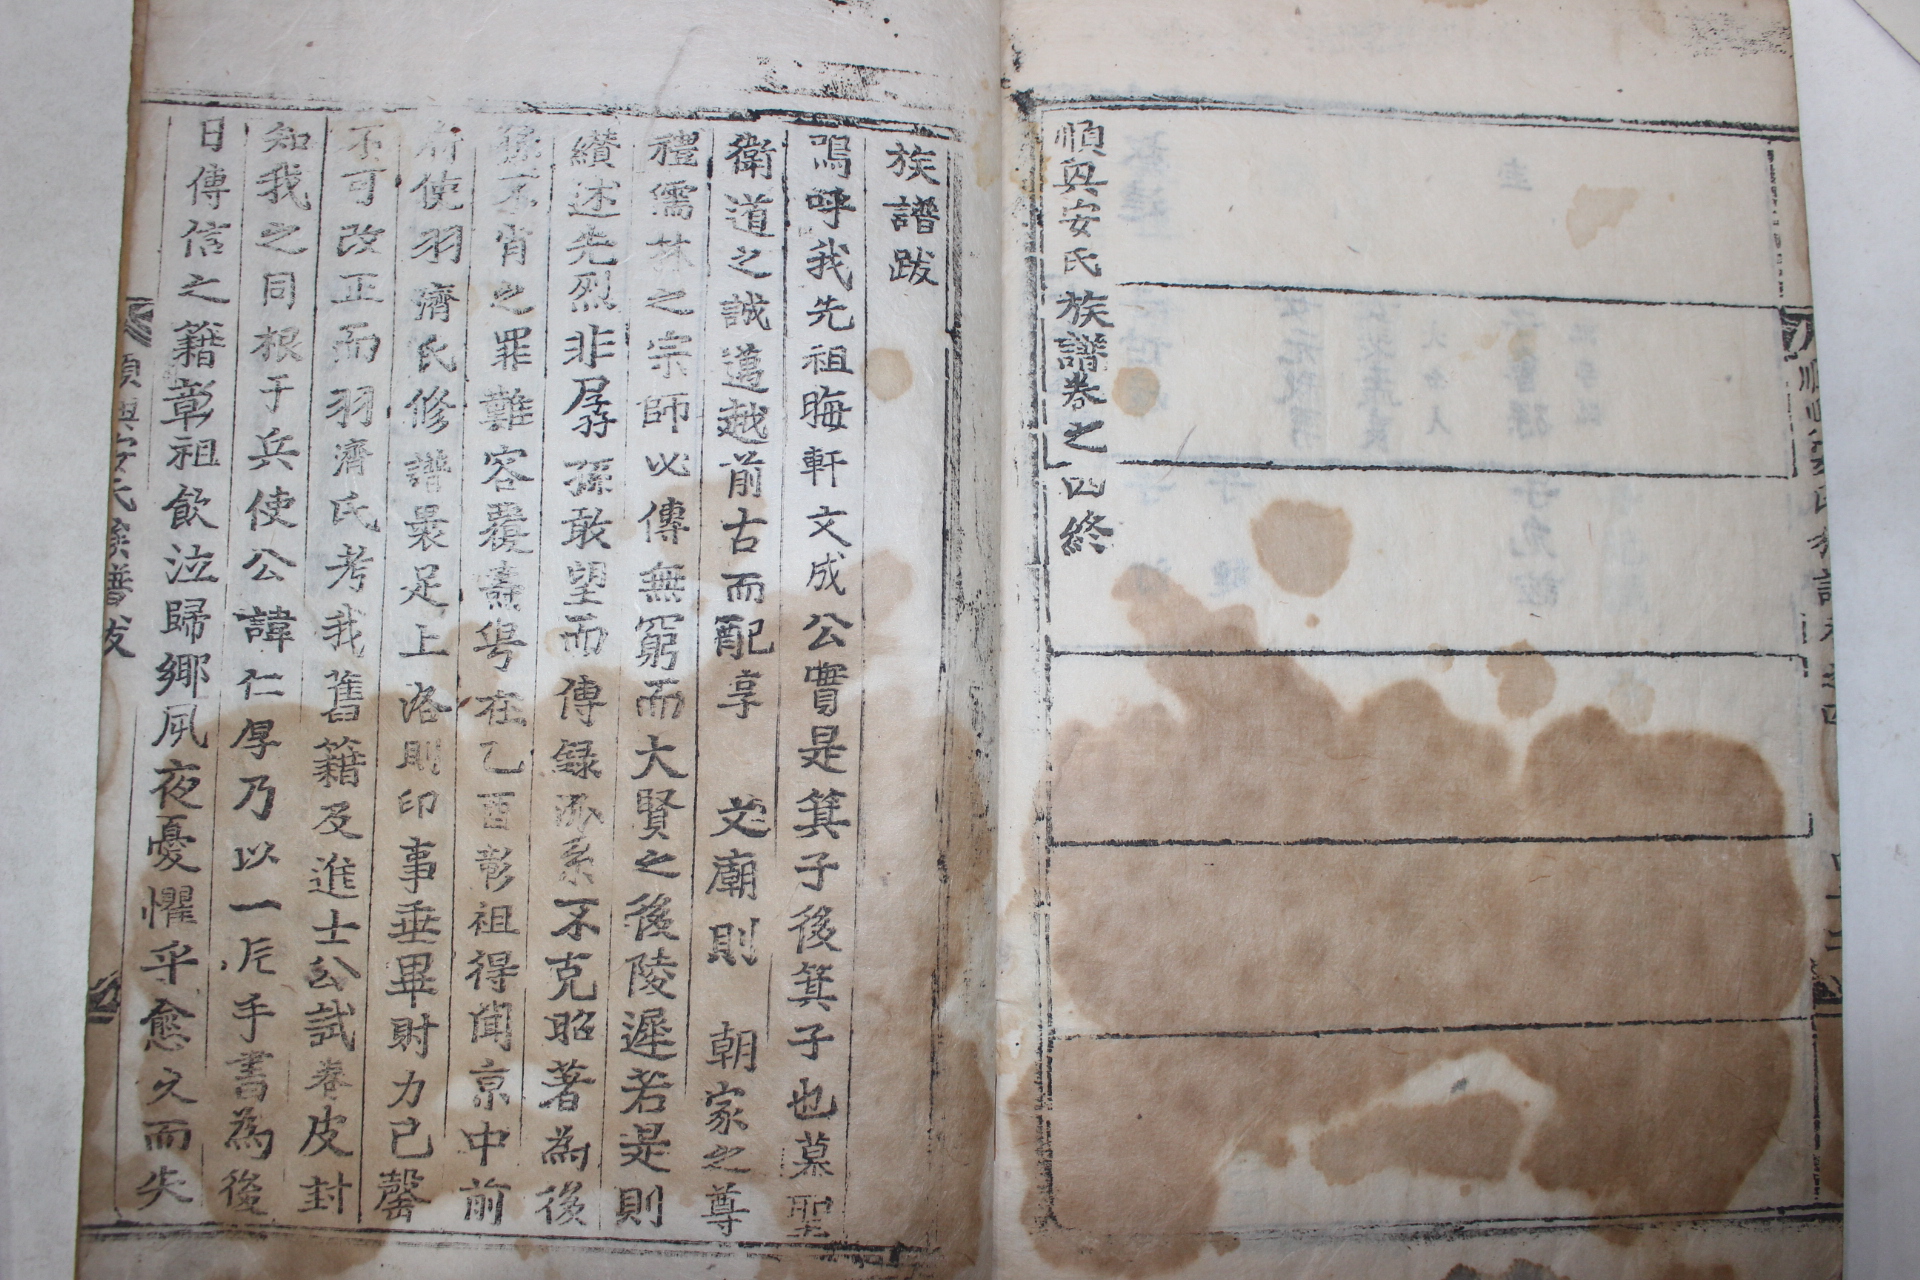 順興安氏族譜卷之四終
族譜跋
嗚呼我先祖晦軒文成公實是箕子後箕子也慕聖
衛道之誠邁越前古而配享 文廟則 朝家之尊
禮儒林之宗師必傳無窮而大賢之後陵遲若是則
纘述先烈非孱孫敢望而傳錄派系不克昭著為後
孫不肖之罪難容覆燾粤在乙酉彰祖得聞京中前
府使羽濟氏修譜裹足上洛則印事垂畢財力已罄
不可改正而羽濟氏考我舊籍及進士公試卷皮封
知我之同根于兵使公諱仁厚乃以一片手書為後
日傳信之籍彰祖飲泣歸鄉夙夜憂懼乎愈久而失
順興安氏族譜跋